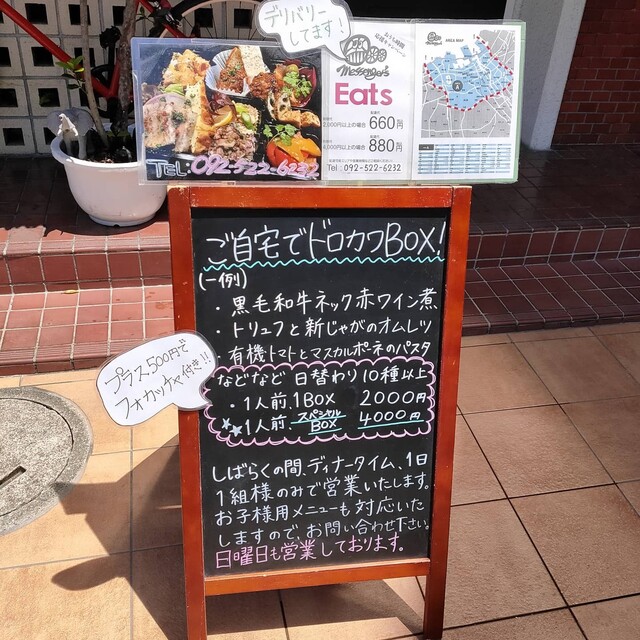 デリバリー
してます!
Messenger's
Eats
2,000円以上の場合 660円
4,000円以上の場合 880円
Tel : 092-522-6232
AREA MAP
TEL:092-522-6232
ご自宅でドロカワBOX!
(一例)
・黒毛和牛ネック赤ワイン煮
・トリュフと新じゃがのオムレツ
・有機トマトとマスカルポーネのパスタ
などなど 日替わり10種以上
・1人前.1BOX 2000円
・1人前.スペシャルBOX 4000円
プラス500円で
フォカッチャ付き!!
しばらくの間、ディナータイム、1日
1組様のみで営業いたします。
お子様用メニューも対応いた
しますので、お問い合わせ下さい。
日曜日も営業しております。